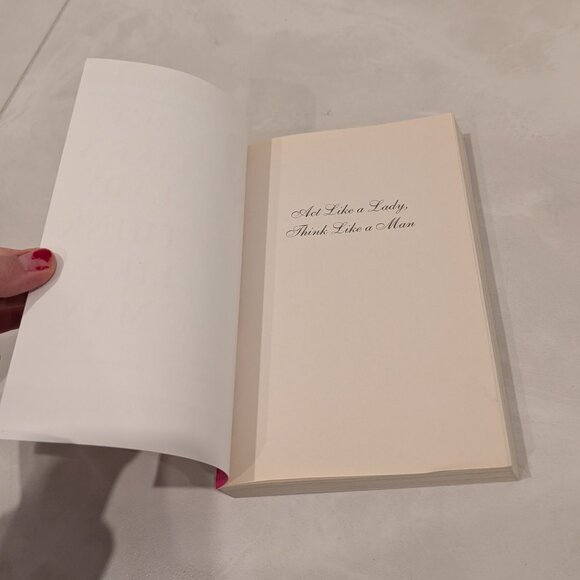 Act Like a Lady,
Think Like a Man